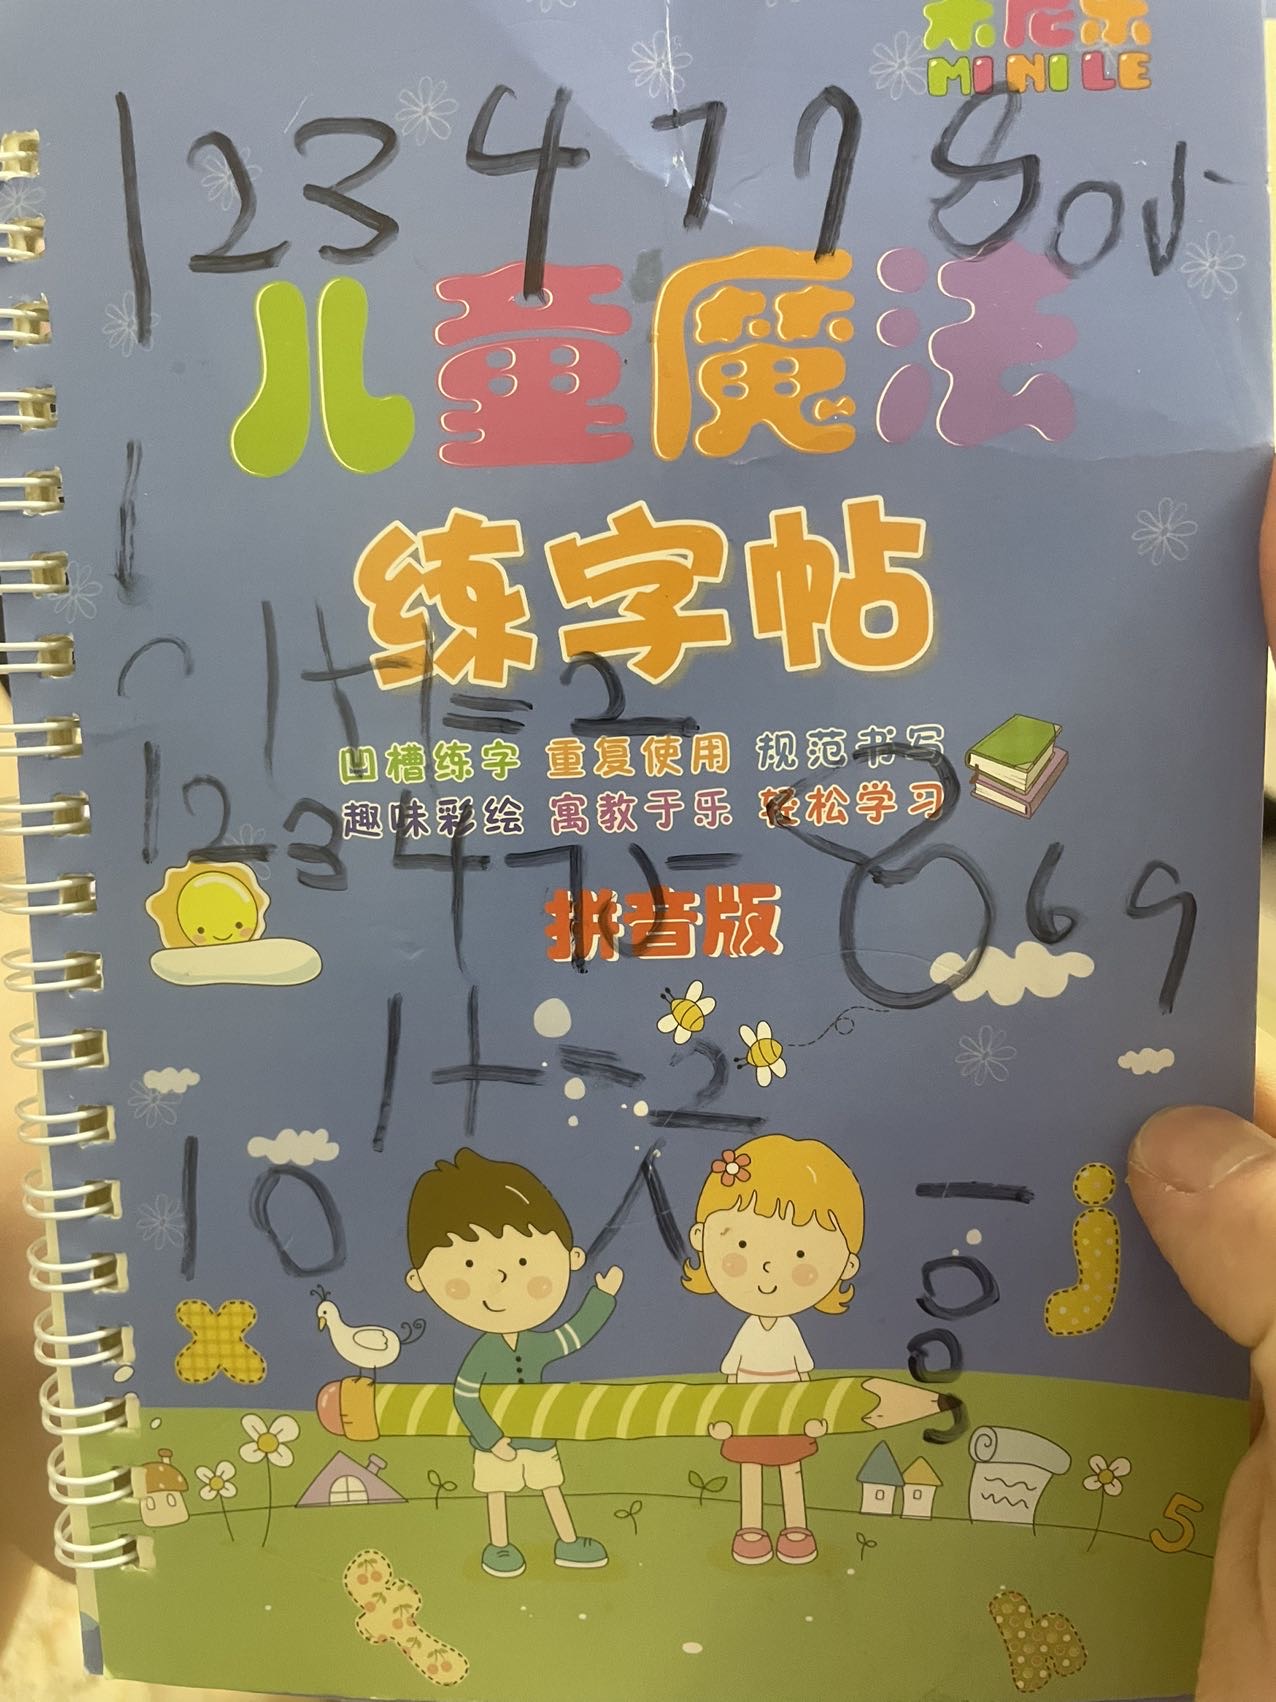 米尼乐
MINILE
1 2 3 4 7 7 8 0
儿童魔法
1
练字帖
1+1=2
凹槽练字 重复使用 规范书写
趣味彩绘 寓教于乐 轻松学习
1 2 3 4 7 8 6 9
拼音版
1+=2
10
x
j
5
f
h